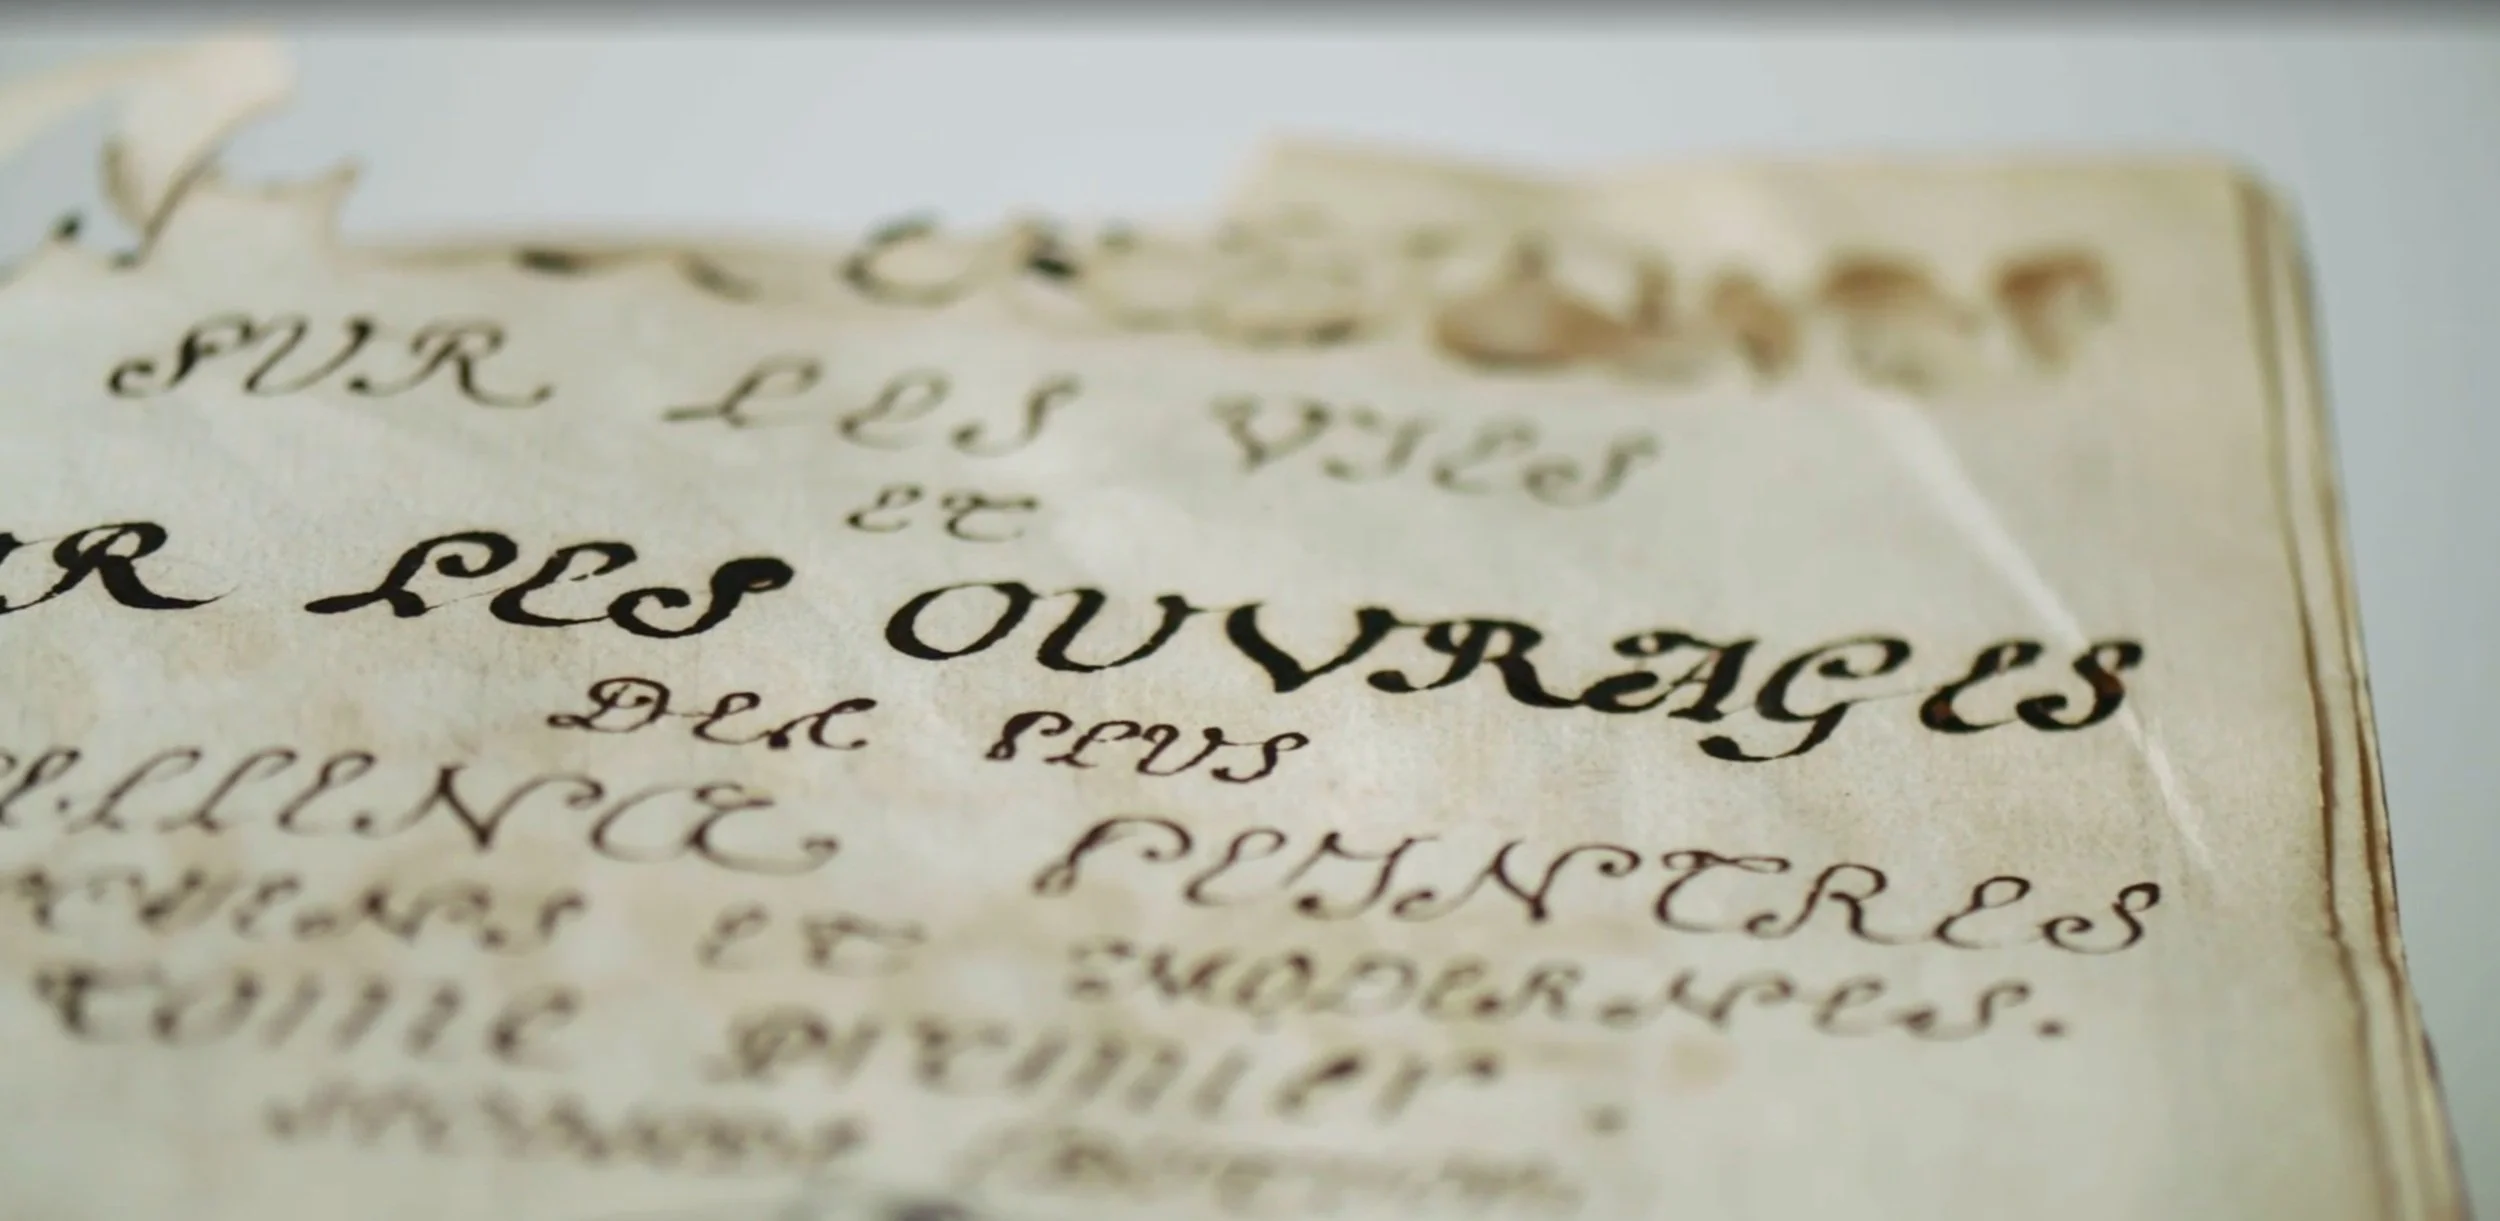 SUR LES VIES
ET
R LES OUVRAGES
DER PLUS
ELLENCE PEINTRES
ET MODERNES.
Tome premier.